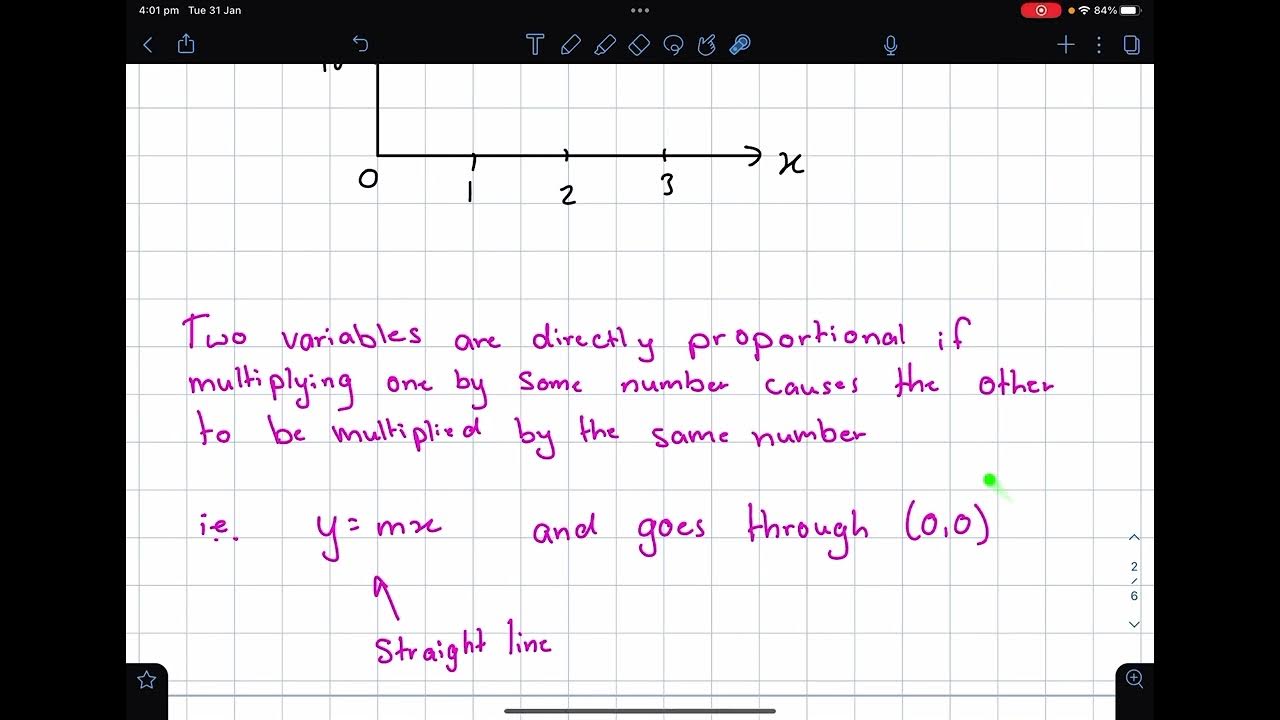 4:01 pm Tue 31 Jan
84%
0
1
2
3
x
Two variables are directly proportional if
multiplying one by some number causes the other
to be multiplied by the same number
i.e. y = mx and goes through (0,0)
Straight line
2
/
6